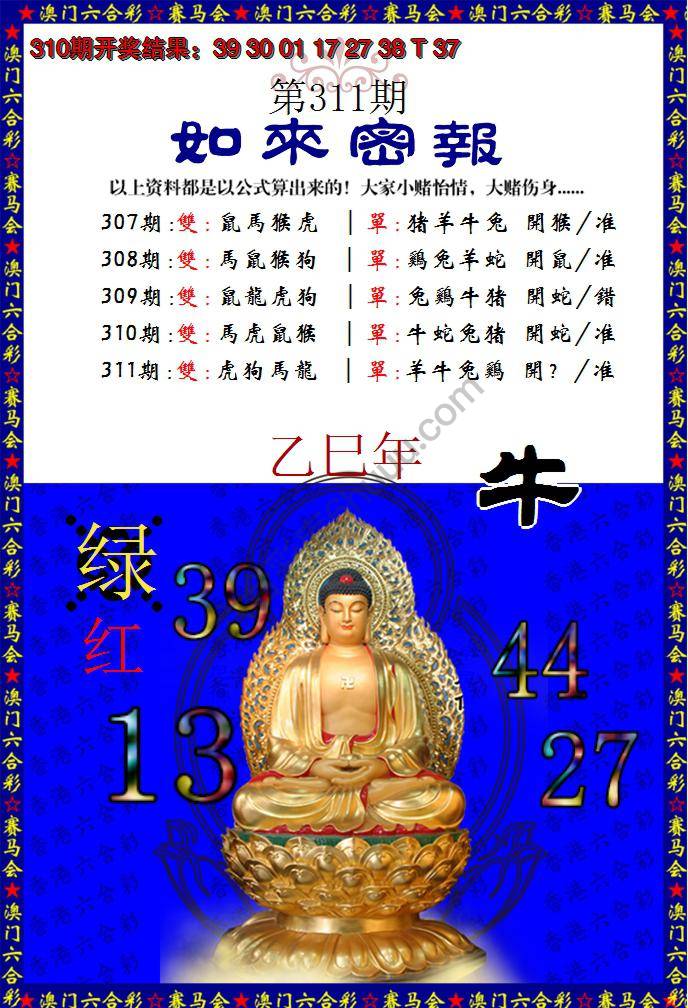 ★澳门六合彩☆赛马会★澳门六合彩☆赛马会★澳门六合彩☆赛马会★
310期开奖结果：39 30 01 17 27 38 T 37
第311期
如來密報
以上资料都是以公式算出来的！大家小赌怡情，大赌伤身......
307期:雙:鼠馬猴虎 | 單:猪羊牛兔 開猴/准
308期:雙:馬鼠猴狗 | 單:鷄兔羊蛇 開鼠/准
309期:雙:鼠龍虎狗 | 單:兔鷄牛猪 開蛇/錯
310期:雙:馬虎鼠猴 | 單:牛蛇兔猪 開蛇/准
311期:雙:虎狗馬龍 | 單:羊牛兔鷄 開?/准
乙巳年
牛
绿
39
红
44
13
27
香港六合彩
★澳门六合彩☆赛马会★澳门六合彩☆赛马会★澳门六合彩☆赛马会★